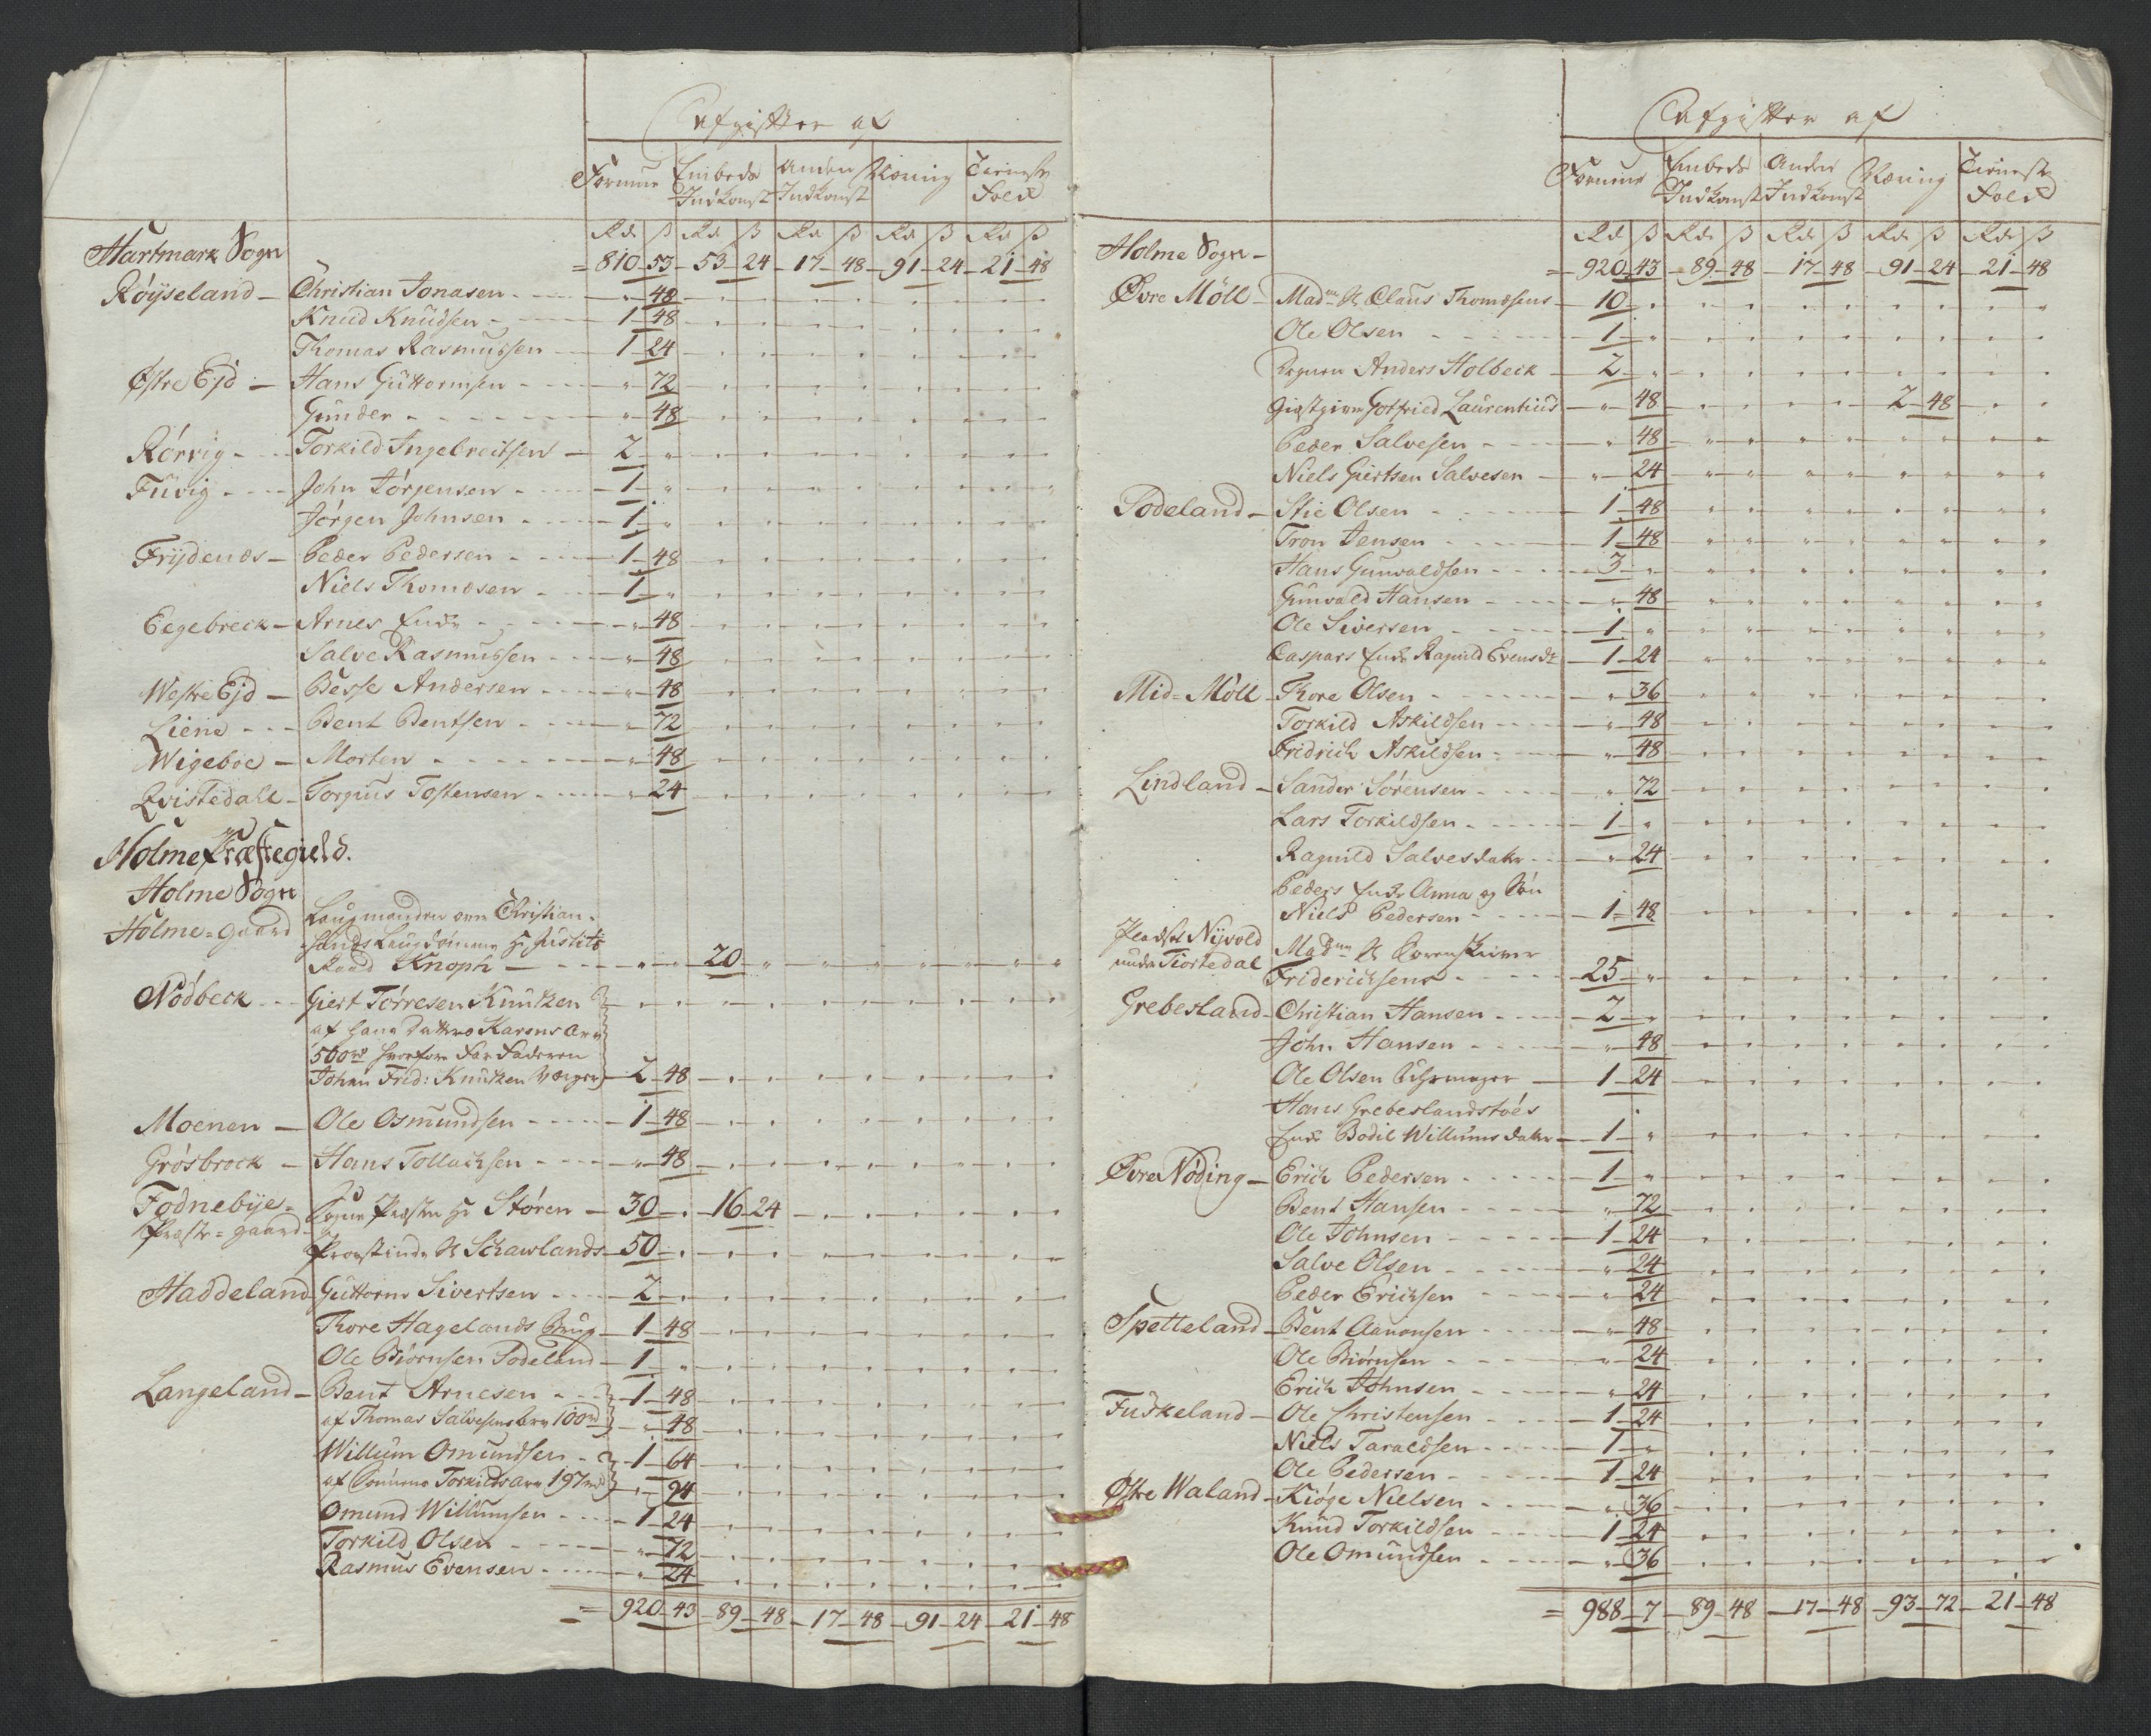 Afgifter af
Formue Embeds Indkomst Anden Indkomst Næring Tieneste Folk
Rd ß Rd ß Rd ß Rd ß Rd ß
Hartmark Sogn = 810 53 53 24 17 48 91 24 21 48
Røyseland Christian Jonasen " 48
Knud Knudsen 1 48
Thomas Rasmussen 1 24
Østre Ejd Hans Guttormsen " 72
Gunder " 48
Rørvig Torkild Ingebreitsen 2 "
Fuvig John Jørgensen 1 "
Jørgen Johnsen 1 "
Frydenes Peder Pedersen 1 48
Niels Thomæsen 1 "
Eegebreck Arnes Enke " 48
Salve Rasmussen " 48
Westre Ejd Besse Andersen " 48
Liene Bent Bentsen " 72
Wigeboe Morten " 48
Qvistedall Torgius Tostensen " 24
Holme Præstegield.
Holme Sogn
Holme=gaard Laugmanden over Christian-
sands Laugdømme Hr Justits
Raad Knoph " " 20 "
Nødbeck Giert Tørresen Knutzen
af hans Datters Karens Arv
500rd hvorfore Far Faderen
Johan Frid: Knutzen værger 2 48
Moenen Ole Osmundsen 1 48
Grøsbrock Hans Tollachsen " 48
Fodnebye Sogne Præsten Hr Støren 30 " 16 24
Præste=gaard
Provstinde Sl Schawlands 50 "
Haddeland Guttorm Sivertsen 2 "
Thore Hagelands Brug 1 48
Ole Biørnsen Sodeland 1 "
Langeland Bent Arnesen 1 48
af Thomas Salvesens Arv 100rd " 48
Willum Omundsen 1 64
af Sønnens Torkilds Arv 197rd " 94
Omund Willumsen 1 24
Torkild Olsen " 72
Rasmus Evensen " 24
= 920 43 89 48 17 48 91 24 21 48
Afgifter af
Formue Embeds Indkomst Anden Indkomst Næring Tieneste Folk
Rd ß Rd ß Rd ß Rd ß Rd ß
Holme Sogn = 920 43 89 48 17 48 91 24 21 48
Øvre Møll Madme Sl Claus Thomæsens 10 "
Ole Olsen 1 "
Degnen Anders Holbeck 2 "
Giestgiver Gotfried Laurentius " 48 2 48
Peder Salvesen " 48
Niels Giertsen Salvesen " 24
Sodeland Stie Olsen 1 48
Tron Jensen 1 48
Hans Gunvaldsen 3 "
Gunvald Hansen " 48
Ole Siversen 1 "
Caspars Enke Ragnild Evensdr 1 24
Mid=Møll Thore Olsen " 36
Torkild Askildsen " 48
Fridrich Askildsen " 48
Lindland Sander Sørensen " 72
Lars Torkildsen 1 "
Ragnild Salvesdatter " 24
Peders Enke Anna og Søn
Niels Pedersen 1 48
Pladset Nyvold Madme Sl Sorenskriver
under Tiortedal Friderichsens 25 "
Grebesland Christian Hansen 2 "
John Hansen " 48
Ole Olsen Uhrmager 1 24
Hans Grebeslandstøes
Enke Bodil Willums datter 1 "
Øvre Nøding Erich Pedersen 1 "
Bent Hansen " 72
Ole Johnsen 1 24
Salve Olsen " 24
Peder Erichsen " 24
Spetteland Bent Aanonsen " 48
Ole Biørnsen " 24
Erich Johnsen " 24
Fuskeland Ole Christensen 1 24
Niels Taraldsen 1 "
Ole Pedersen 1 24
Østre Waland Kiøge Nielsen " 36
Knud Torkildsen 1 24
Ole Omundsen " 36
= 988 7 89 48 17 48 93 72 21 48